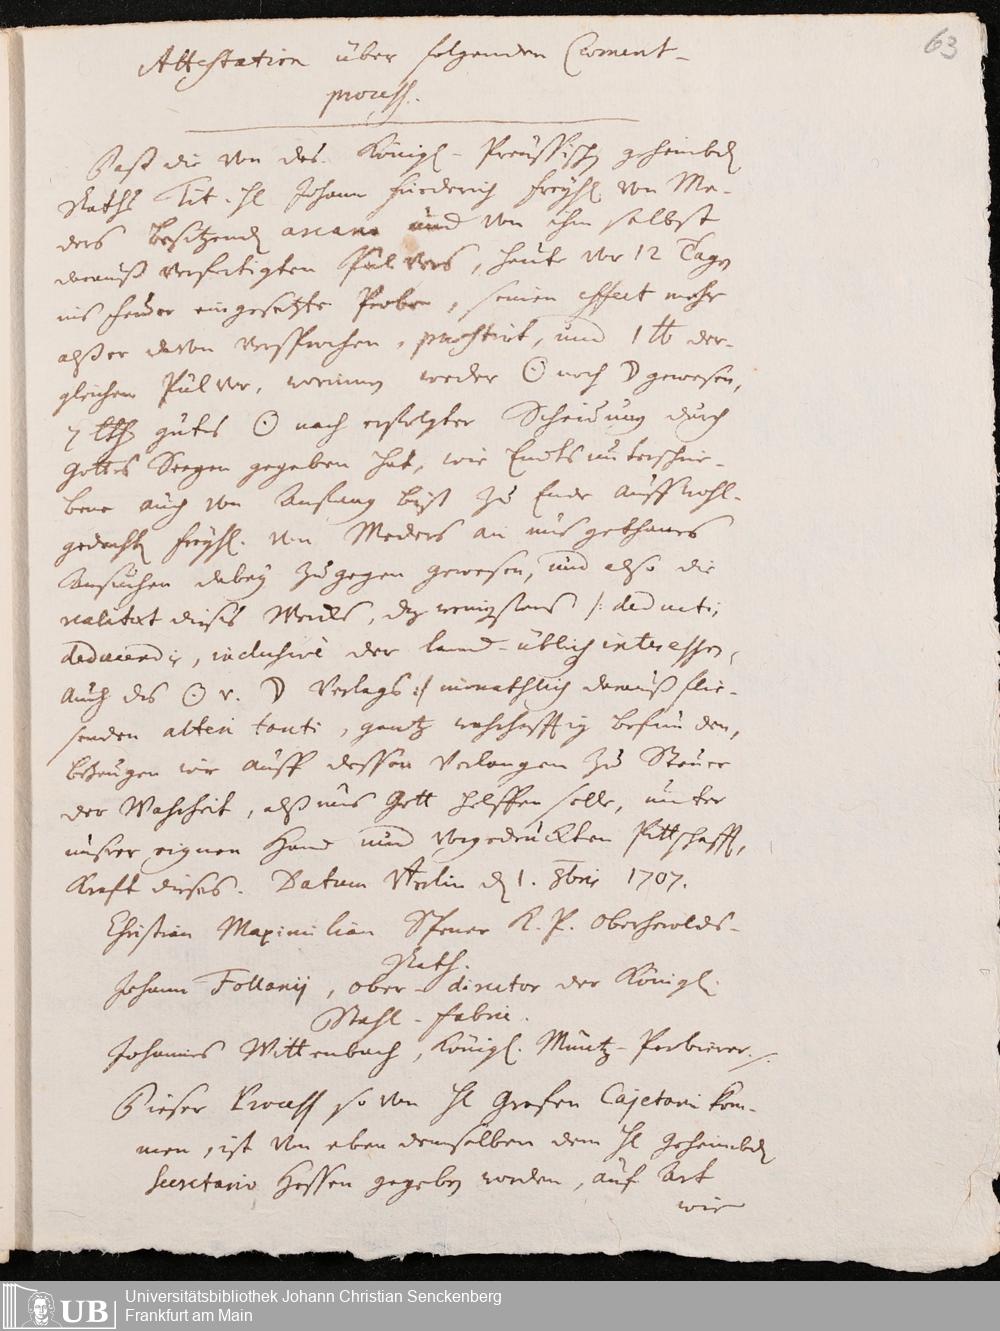 63
Attestation über folgenden Cement-
process.
Daß die von des Königl- Preüssisch geheimbd
Raths Tit. Hl Johann Friederich Freyhl von Me-
ders besitzend arcano und von ihm selbst
darauß verfertigten Pulvers, heute vor 12 Tagen
ins feuer eingesetzte Probe, seinen effect mehr
alß er davon versprochen, praestirt, und 1 ℔ der-
gleichen Pulver, worinnen weder ☉ noch ☽ gewesen,
7 lth gutes ☉ nach erfolgter Scheidung durch
Gottes Seegen gegeben hat, wie Endts unterschrie-
bene auch von Anfang biß zu Ende auff wohl-
gedacht Freyhl. von Meders an uns gethanes
Ansuchen dabey zugegen gewesen, und also die
realitaet dieses Wercks, der wenigstens /: deductis
deducendis, inclusive der land-üblich interessen,
auch des ☉ v. ☽ Verlags :/ monathlich darauß flie-
senden alteri tanti, gantz wahrhafftig befunden,
bezeugen wir auff dessen Verlangen zu Steuer
der Wahrheit, alß uns Gott helffen solle, unter
unsrer eignen Hand und vorgedruckten Pittschafft,
Krafft dieses. Datum Berlin d 1. 8bris 1707.
Christian Maximilian Spener K. P. Oberherolds-
Rath.
Johann Follarij, ober-director der Königl.
Stahl-fabric.
Johannes Wittenbach, Königl. Müntz-Probierer./.
Dieser Process so von Hl Grafen Cajetani kom-
men, ist von eben demselben dem Hl Geheimbd
Secretario Hessen gegeben worden, auf Art
wie
UB
Universitätsbibliothek Johann Christian Senckenberg
Frankfurt am Main